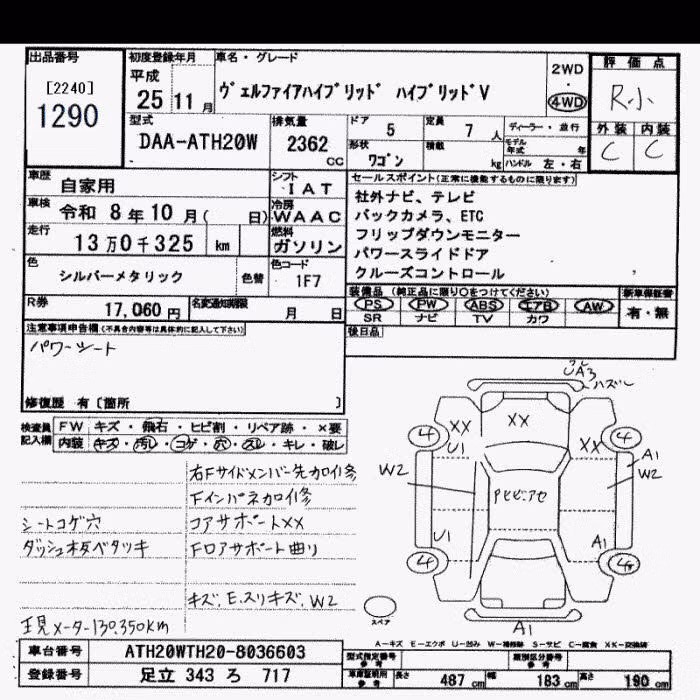 出品番号
[2240]
1290
初度登録年月
平成
25 11 月
車名・グレード
ヴェルファイアハイブリッド ハイブリッドV
2WD
・
4WD
評価点
R小
外装 内装
C C
型式
DAA-ATH20W
排気量
2362
cc
ドア 5
定員 7 人
形状
ワゴン
積載
kg
ディーラー・並行
モデル年式 年
ハンドル 左・右
車歴
自家用
シフト
IAT
車検
令和 8年10月( 日)
冷房
WAAC
走行
13万0千325 km
燃料
ガソリン
色
シルバーメタリック
色替
色コード
1F7
R券
17,060 円
名変通知期限
月 日
セールスポイント(正常に機能するものに限ります)
社外ナビ、テレビ
バックカメラ、ETC
フリップダウンモニター
パワースライドドア
クルーズコントロール
装備品 (純正品に限り○をつけてください)
PS PW ABS エアB AW
SR ナビ TV カワ
新車保証書
有・無
後日品
注意事項申告欄(不具合内容等は具体的に記入して下さい)
パワーシート
修復歴 有〔箇所 〕
検査員
記入欄
FW キズ・飛石・ヒビ割・リペア跡・×要
内装 キズ・汚レ・コゲ・穴・スレ・キレ・破レ
右Fサイドメンバー先加口修
Fインパネ加口修
シートコゲ穴
コアサポートXX
ダッシュ板ベタツキ
Fロアサポート曲り
キズ、E、スリキズ、W2
現メーター130,350KM
UA3
ハズレ
XX
XX
XX
4
4
U1
A1
W2
W2
U1
A1
4
A1
スペア
A-キズ E-エクボ U-凹み W-補修跡 S-サビ C-腐食 XX-交換済
車台番号
ATH20WTH20-8036603
登録番号
足立 343 ろ 717
型式指定番号
参考
類別区分番号
参考
車庫証明用
参考
長さ 487 cm
幅 183 cm
高さ 190 cm